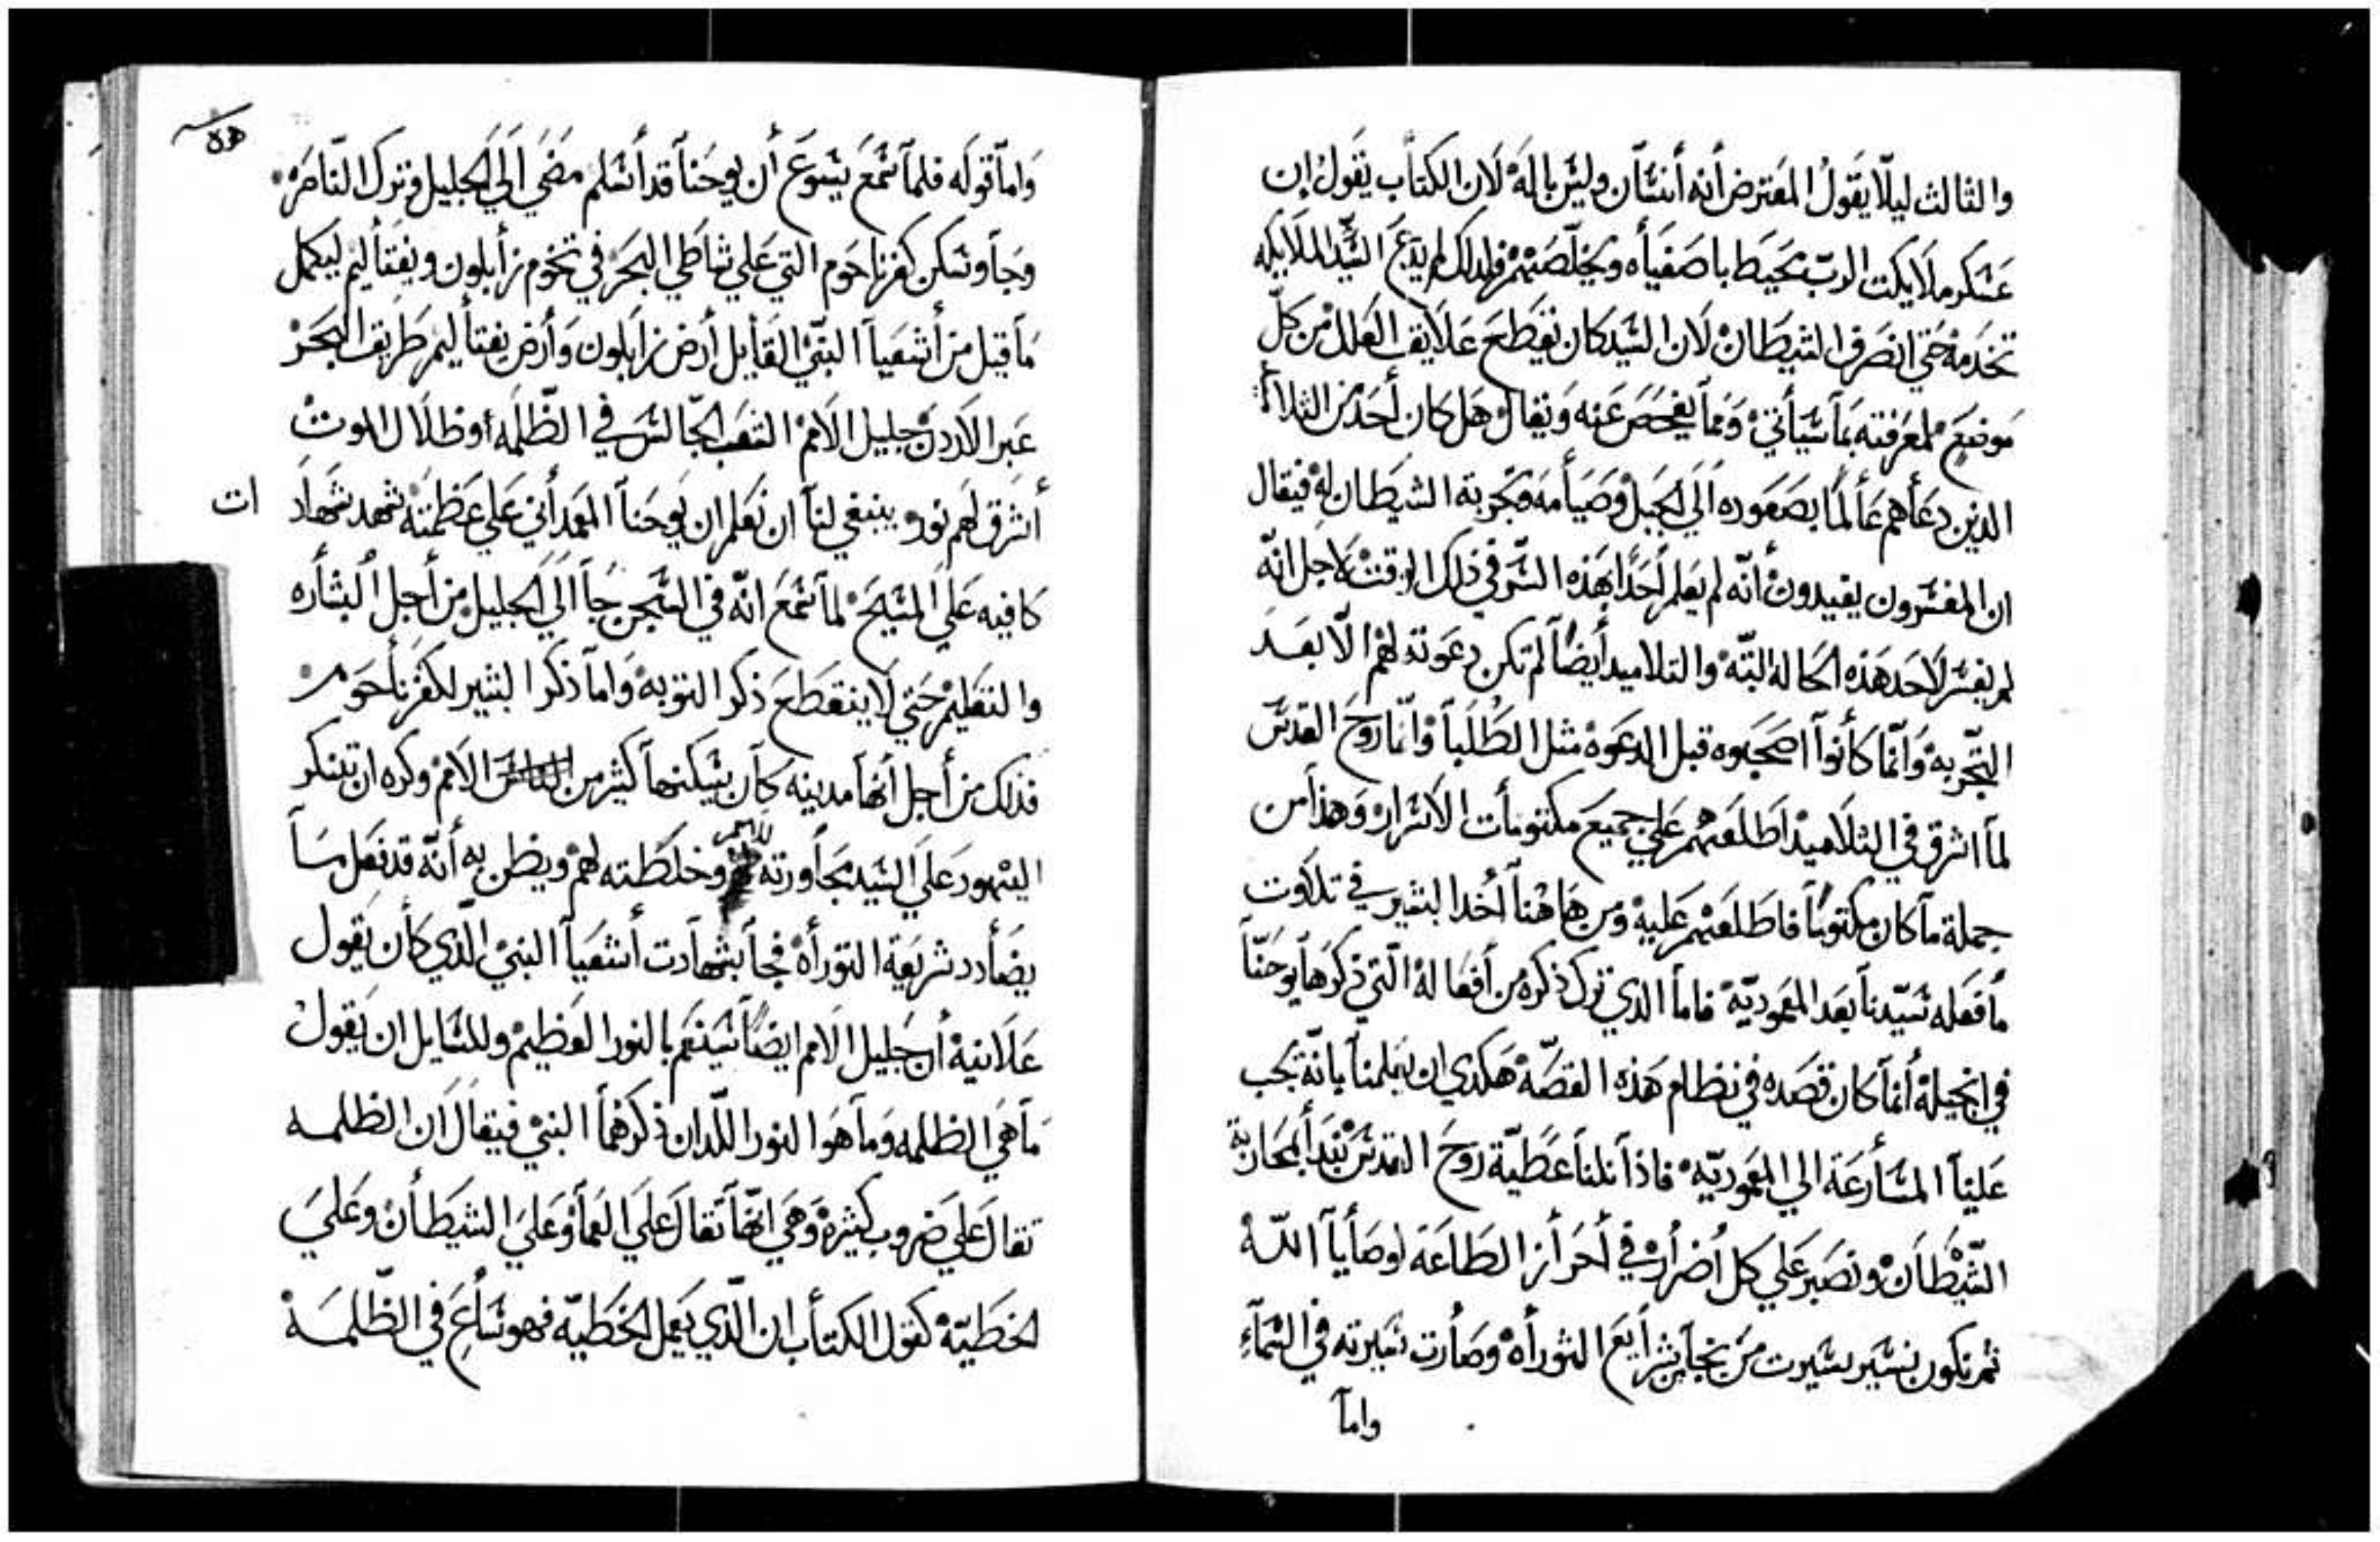 والثالث ليلّا يقول المعترض أنه أنسان وليس بالهْ لان الكتاب يقول إن
عسكر ملايكت الربّ تحيط باصفيأه ويخلّصهم فلذلك لم يدع السيّد الملايكه
تخدمهْ حتي انصرف الشيطانْ لان السيد كان يقطع علايق العللْ من كلّ
موضعٍ لمعرفته بمآ سيأتيْ وممآ يفحص عنه ويقالْ هل كان أحد من الثلاثه
الذين دعأهم عألمًا بصعوده الي الجبلْ وصيأمه وتجربة الشيطان لهْ فيقال
ان المفسرون يفيدونْ أنّه لم يعلم أحدًا بهذه السر في ذلك الوقتْ لاجل انّه
لم يفسر لاحد هذه الحالة البتّهْ والتلاميد أيضاً لم تكن دعوته لهمْ الّا بعد
التجّربهْ وانّما كأنوآ اصحبوه قبل الدعوهْ مثل الطُلبآ وْانّما روح القدس
لمآ اشرق في التلاميدْ اطلعهم علي جميع مكتومأت الاسرارْ وهذا من
جملة مآ كان مكتومًا فاطلعهم عليهْ ومن هاهنآ أخد البشير في تلاوت
مأ فعله سيّدنآ بعد المعموديّهْ فامآ الذي ترك ذكره من أفعالهْ الّتي ذكرهآ يوحنّآ
في انجيلهْ أنمآ كان قصده في نظام هذه القصّهْ هكدي ان يعلمنآ بانّهْ يجب
علينآ المسأرعة الي المعموديّهْ فاذآ نلنآ عطيّة روح القدس نبدأ بمحاربة
الشيْطانْ ونصبر علي كل أضرارْ في أحرأز الطاعة لوصأيآ اللّهْ
ثم نكون نسير بسيرت من نجآ من شرأيع التورأهْ وصأرت سيرته في السمآءِ
وامآ
وامآ قوله فلمآ سمع يسوع أن يوحنآ قد أسلم مضي الي الجليل وترك النّاصرهْ
وجآ وسكن كفرناحوم التي علي شاطي البحرْ في تخوم زأبلون ونفتأليم ليكمل
مآ قيل من أشعيآ النبّيْ القأيل أرض زابلون وأرض نفتأليم طريق البحرْ
عبر الاردنْ جليل الاممْ الشعب الجّالس في الظّلمه أوظلال الموتْ
أشرق لهم نور وينبغي لنآ ان نعلم ان يوحنآ المعمدأني علي عظمته شهد شهاد ات
كافيه علي المسيحْ لمآ سمع انّه في السجن جآ الي الجليلْ من أجل البشأره
والتعليم حتي لا ينقطع ذكر التوبهْ وامآ ذكر البشير لكفرنأحوم
فذلك من أجل أنهآ مدينه كآن يسكنهآ كثير من الاممْ وكره ان تنكر
اليهود علي السيد مجآورته للامم وخلطته لهمْ ويظن به أنّه قد فعل مآ
يضأدد شريعة التورأهْ فجآ بشهآدت أشعيآ النبيْ الّذي كأن يقول
علانيةْ أن جليل الامم ايضاً سينعم بالنور العظيمْ وللسّايل ان يقولْ
مآ هي الظلمه ومآ هوا النور اللّدان ذكرهمأ النبيْ فيقال ان الظلمه
تقال علي ضروب كثيرهْ وهي انهّآ تقال علي العمآ وْعلي الشيطأنْ وعلي
الخطيّهْ كقول الكتأب ان الّذي يعمل الخطيّه فهو سأعٍ في الظّلمهْ